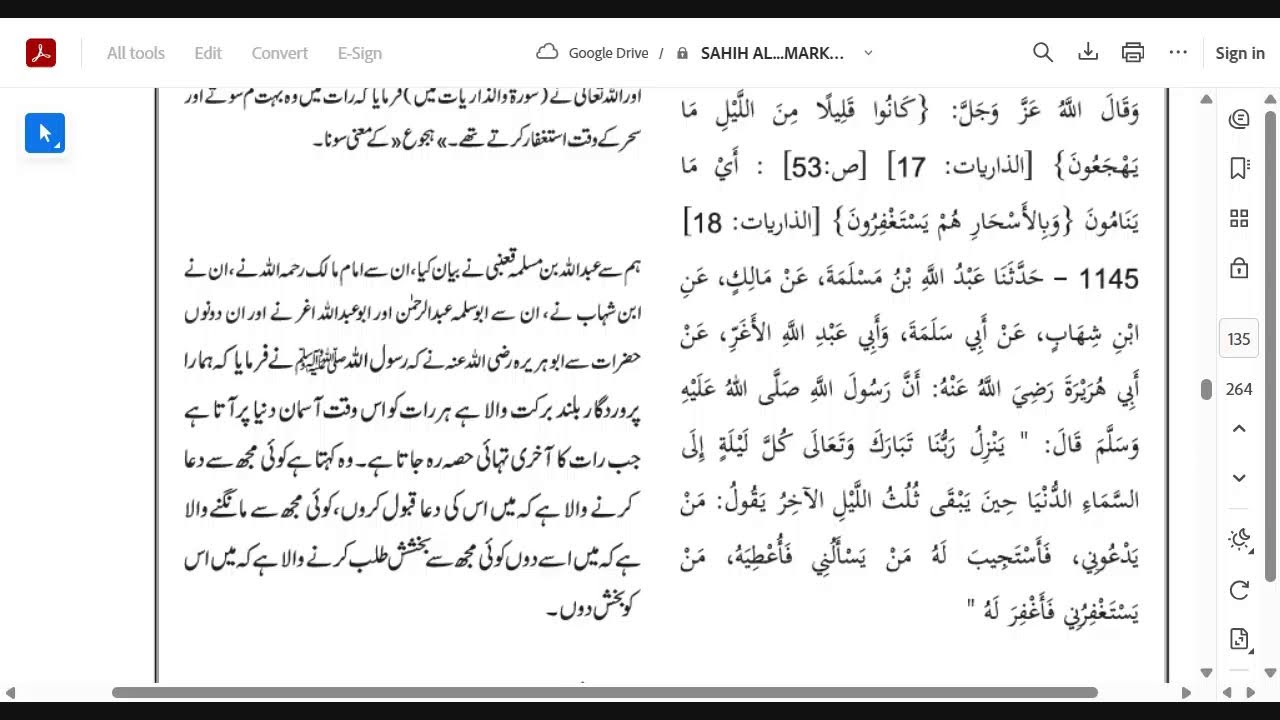 All tools Edit Convert E-Sign Google Drive / SAHIH AL...MARK... Sign in
وَقَالَ اللَّهُ عَزَّ وَجَلَّ: {كَانُوا قَلِيلًا مِنَ اللَّيْلِ مَا
يَهْجَعُونَ} [الذاريات: 17] [ص:53] : أَيْ مَا
يَنَامُونَ {وَبِالأَسْحَارِ هُمْ يَسْتَغْفِرُونَ} [الذاريات: 18]
1145 – حَدَّثَنَا عَبْدُ اللَّهِ بْنُ مَسْلَمَةَ، عَنْ مَالِكٍ، عَنِ
ابْنِ شِهَابٍ، عَنْ أَبِي سَلَمَةَ، وَأَبِي عَبْدِ اللَّهِ الأَغَرِّ، عَنْ
أَبِي هُرَيْرَةَ رَضِيَ اللَّهُ عَنْهُ: أَنَّ رَسُولَ اللَّهِ صَلَّى اللهُ عَلَيْهِ
وَسَلَّمَ قَالَ: " يَنْزِلُ رَبُّنَا تَبَارَكَ وَتَعَالَى كُلَّ لَيْلَةٍ إِلَى
السَّمَاءِ الدُّنْيَا حِينَ يَبْقَى ثُلُثُ اللَّيْلِ الآخِرُ يَقُولُ: مَنْ
يَدْعُونِي، فَأَسْتَجِيبَ لَهُ مَنْ يَسْأَلُنِي فَأُعْطِيَهُ، مَنْ
يَسْتَغْفِرُنِي فَأَغْفِرَ لَهُ "
اور اللہ تعالیٰ نے (سورۃ والذاریات میں) فرمایا کہ رات میں وہ بہت کم سوتے اور
سحر کے وقت استغفار کرتے تھے۔» ہجوع« کے معنی سونا۔
ہم سے عبداللہ بن مسلمہ قعنبی نے بیان کیا، ان سے امام مالک رحمہ اللہ نے، ان نے
ابن شہاب نے، ان سے ابوسلمہ عبدالرحمٰن اور ابوعبداللہ اغر نے اور ان دونوں
حضرات سے ابوہریرہ رضی اللہ عنہ نے کہ رسول اللہ ﷺ نے فرمایا کہ ہمارا
پروردگار بلند برکت والا ہے ہر رات کو اس وقت آسمان دنیا پر آتا ہے
جب رات کا آخری تہائی حصہ رہ جاتا ہے۔ وہ کہتا ہے کوئی مجھ سے دعا
کرنے والا ہے کہ میں اس کی دعا قبول کروں، کوئی مجھ سے مانگنے والا
ہے کہ میں اسے دوں کوئی مجھ سے بخشش طلب کرنے والا ہے کہ میں اس
کو بخش دوں۔
135
264